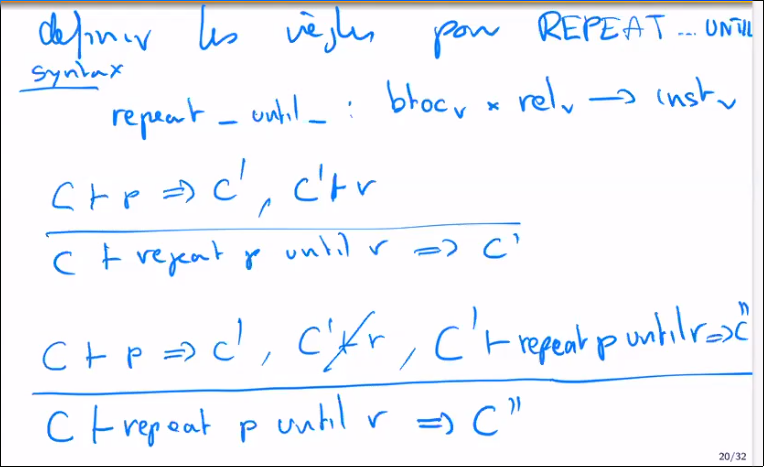 definir les règles pour REPEAT ... UNTIL
syntax
repeat _ until _ : bloc_v × rel_v → inst_v
C ⊢ p ⇒ C' , C' ⊢ r
C ⊢ repeat p until r ⇒ C'
C ⊢ p ⇒ C' , C' ⊬ r , C' ⊢ repeat p until r ⇒ C''
C ⊢ repeat p until r ⇒ C''
20/32